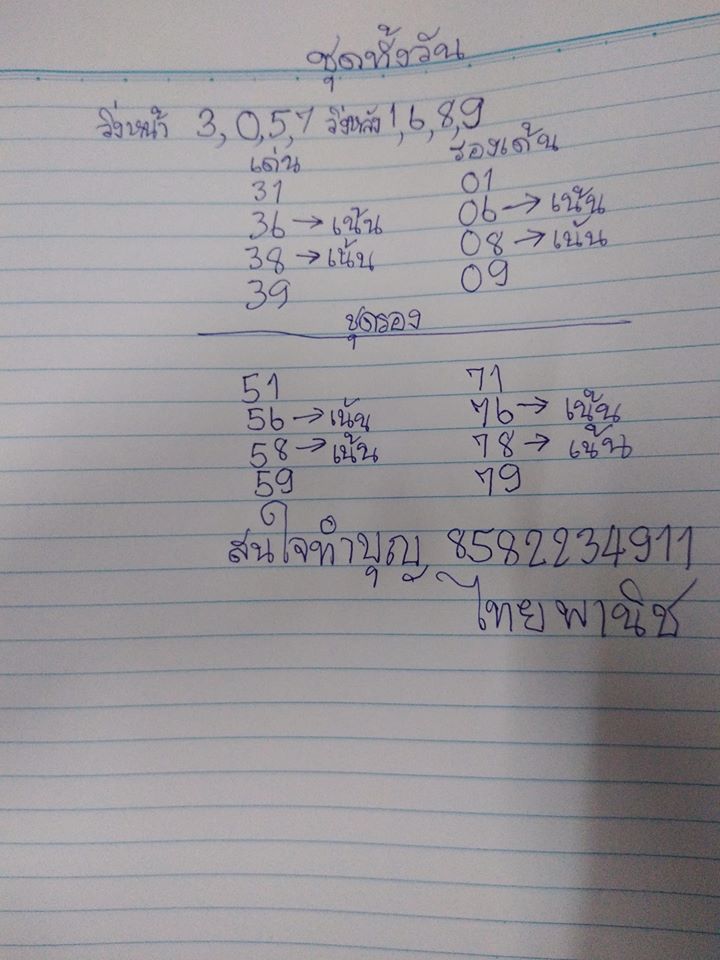 ชุดทั้งวัน
วิ่งหน้า 3,0,5,7 วิ่งหลัง 1,6,8,9
เด่น รองเด่น
31 01
36 → เน้น 06 → เน้น
38 → เน้น 08 → เน้น
39 09
ชุดรอง
51 71
56 → เน้น 76 → เน้น
58 → เน้น 78 → เน้น
59 79
สนใจทำบุญ 8582234911
ไทยพานิช